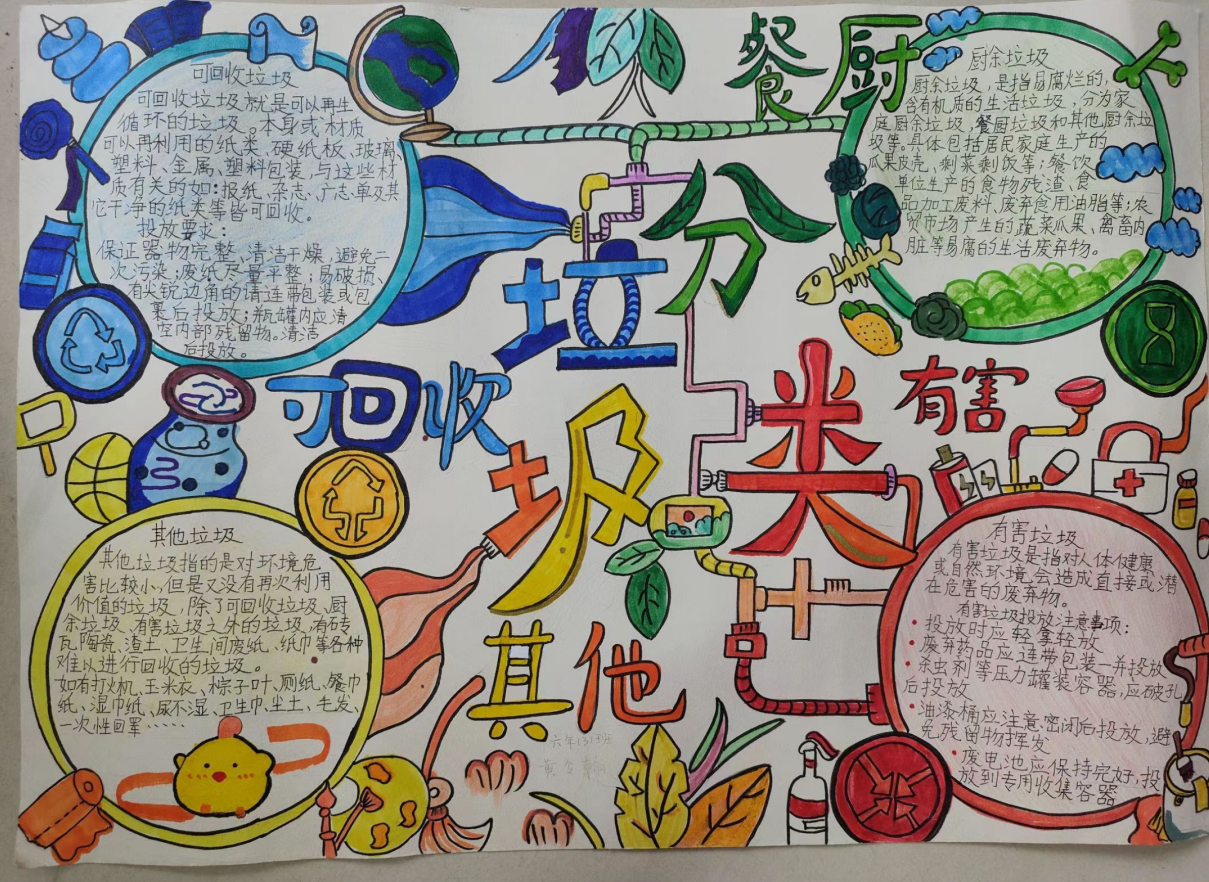 餐厨
可回收垃圾
可回收垃圾就是可以再生
循环的垃圾。本身或材质
可以再利用的纸类、硬纸板、玻璃、
塑料、金属、塑料包装,与这些材
质有关的如:报纸、杂志、广志单及其
它干净的纸类等皆可回收。
投放要求:
保证器物完整,清洁干燥,避免二
次污染;废纸尽量平整;易破损、
有尖锐边角的请连带包装或包
裹后投放;瓶罐内应清
空内部残留物。清洁
后投放。
厨余垃圾
厨余垃圾,是指易腐烂的,
含有机质的生活垃圾,分为家
庭厨余垃圾,餐厨垃圾和其他厨余垃
圾等。具体包括居民家庭生产的
瓜果皮壳、剩菜剩饭等;餐饮
单位生产的食物残渣、食
品加工废料、废弃食用油脂等;农
贸市场产生的蔬菜瓜果、禽畜内
脏等易腐的生活废弃物。
垃圾分类
可回收
有害
其他垃圾
其他垃圾指的是对环境危
害比较小,但是又没有再次利用
价值的垃圾,除了可回收垃圾、厨
余垃圾、有害垃圾之外的垃圾,有砖
瓦陶瓷、渣土、卫生间废纸、纸巾等各种
难以进行回收的垃圾。
如有打火机、玉米衣、粽子叶、厕纸、餐巾
纸、湿巾纸、尿不湿、卫生巾、尘土、毛发、
一次性口罩······
有害垃圾
有害垃圾是指对人体健康
或自然环境会造成直接或潜
在危害的废弃物。
有害垃圾投放注意事项:
•投放时应轻拿轻放
废弃药品应连带包装一并投放
•杀虫剂等压力罐装容器,应破孔
后投放
•油漆桶应注意密闭后投放,避
免残留物挥发
•废电池应保持完好,投
放到专用收集容器
其他
六年(3)班